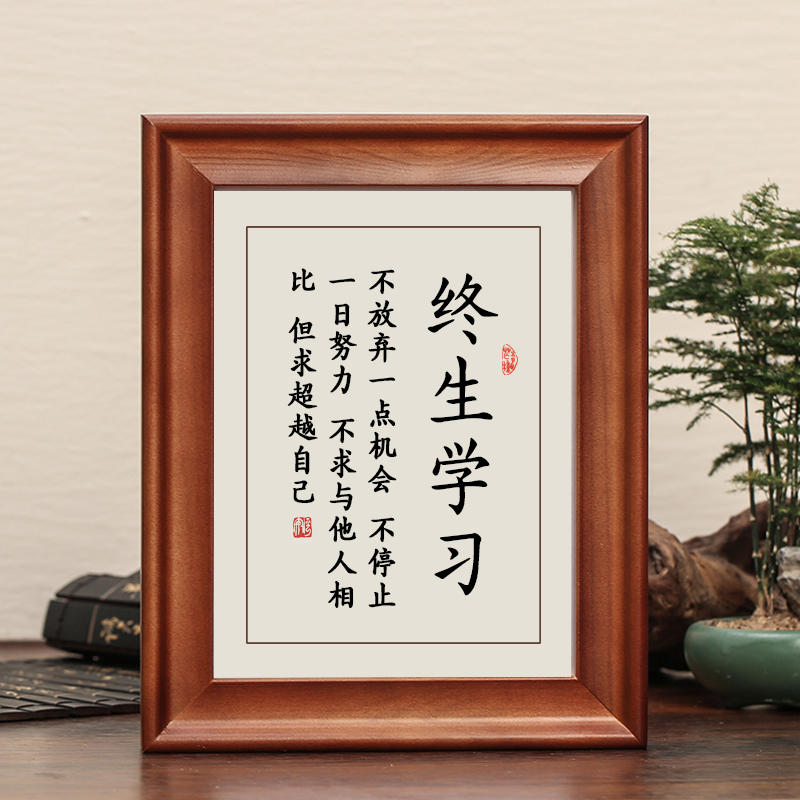 终生学习
不放弃一点机会 不停止
一日努力 不求与他人相
比 但求超越自己